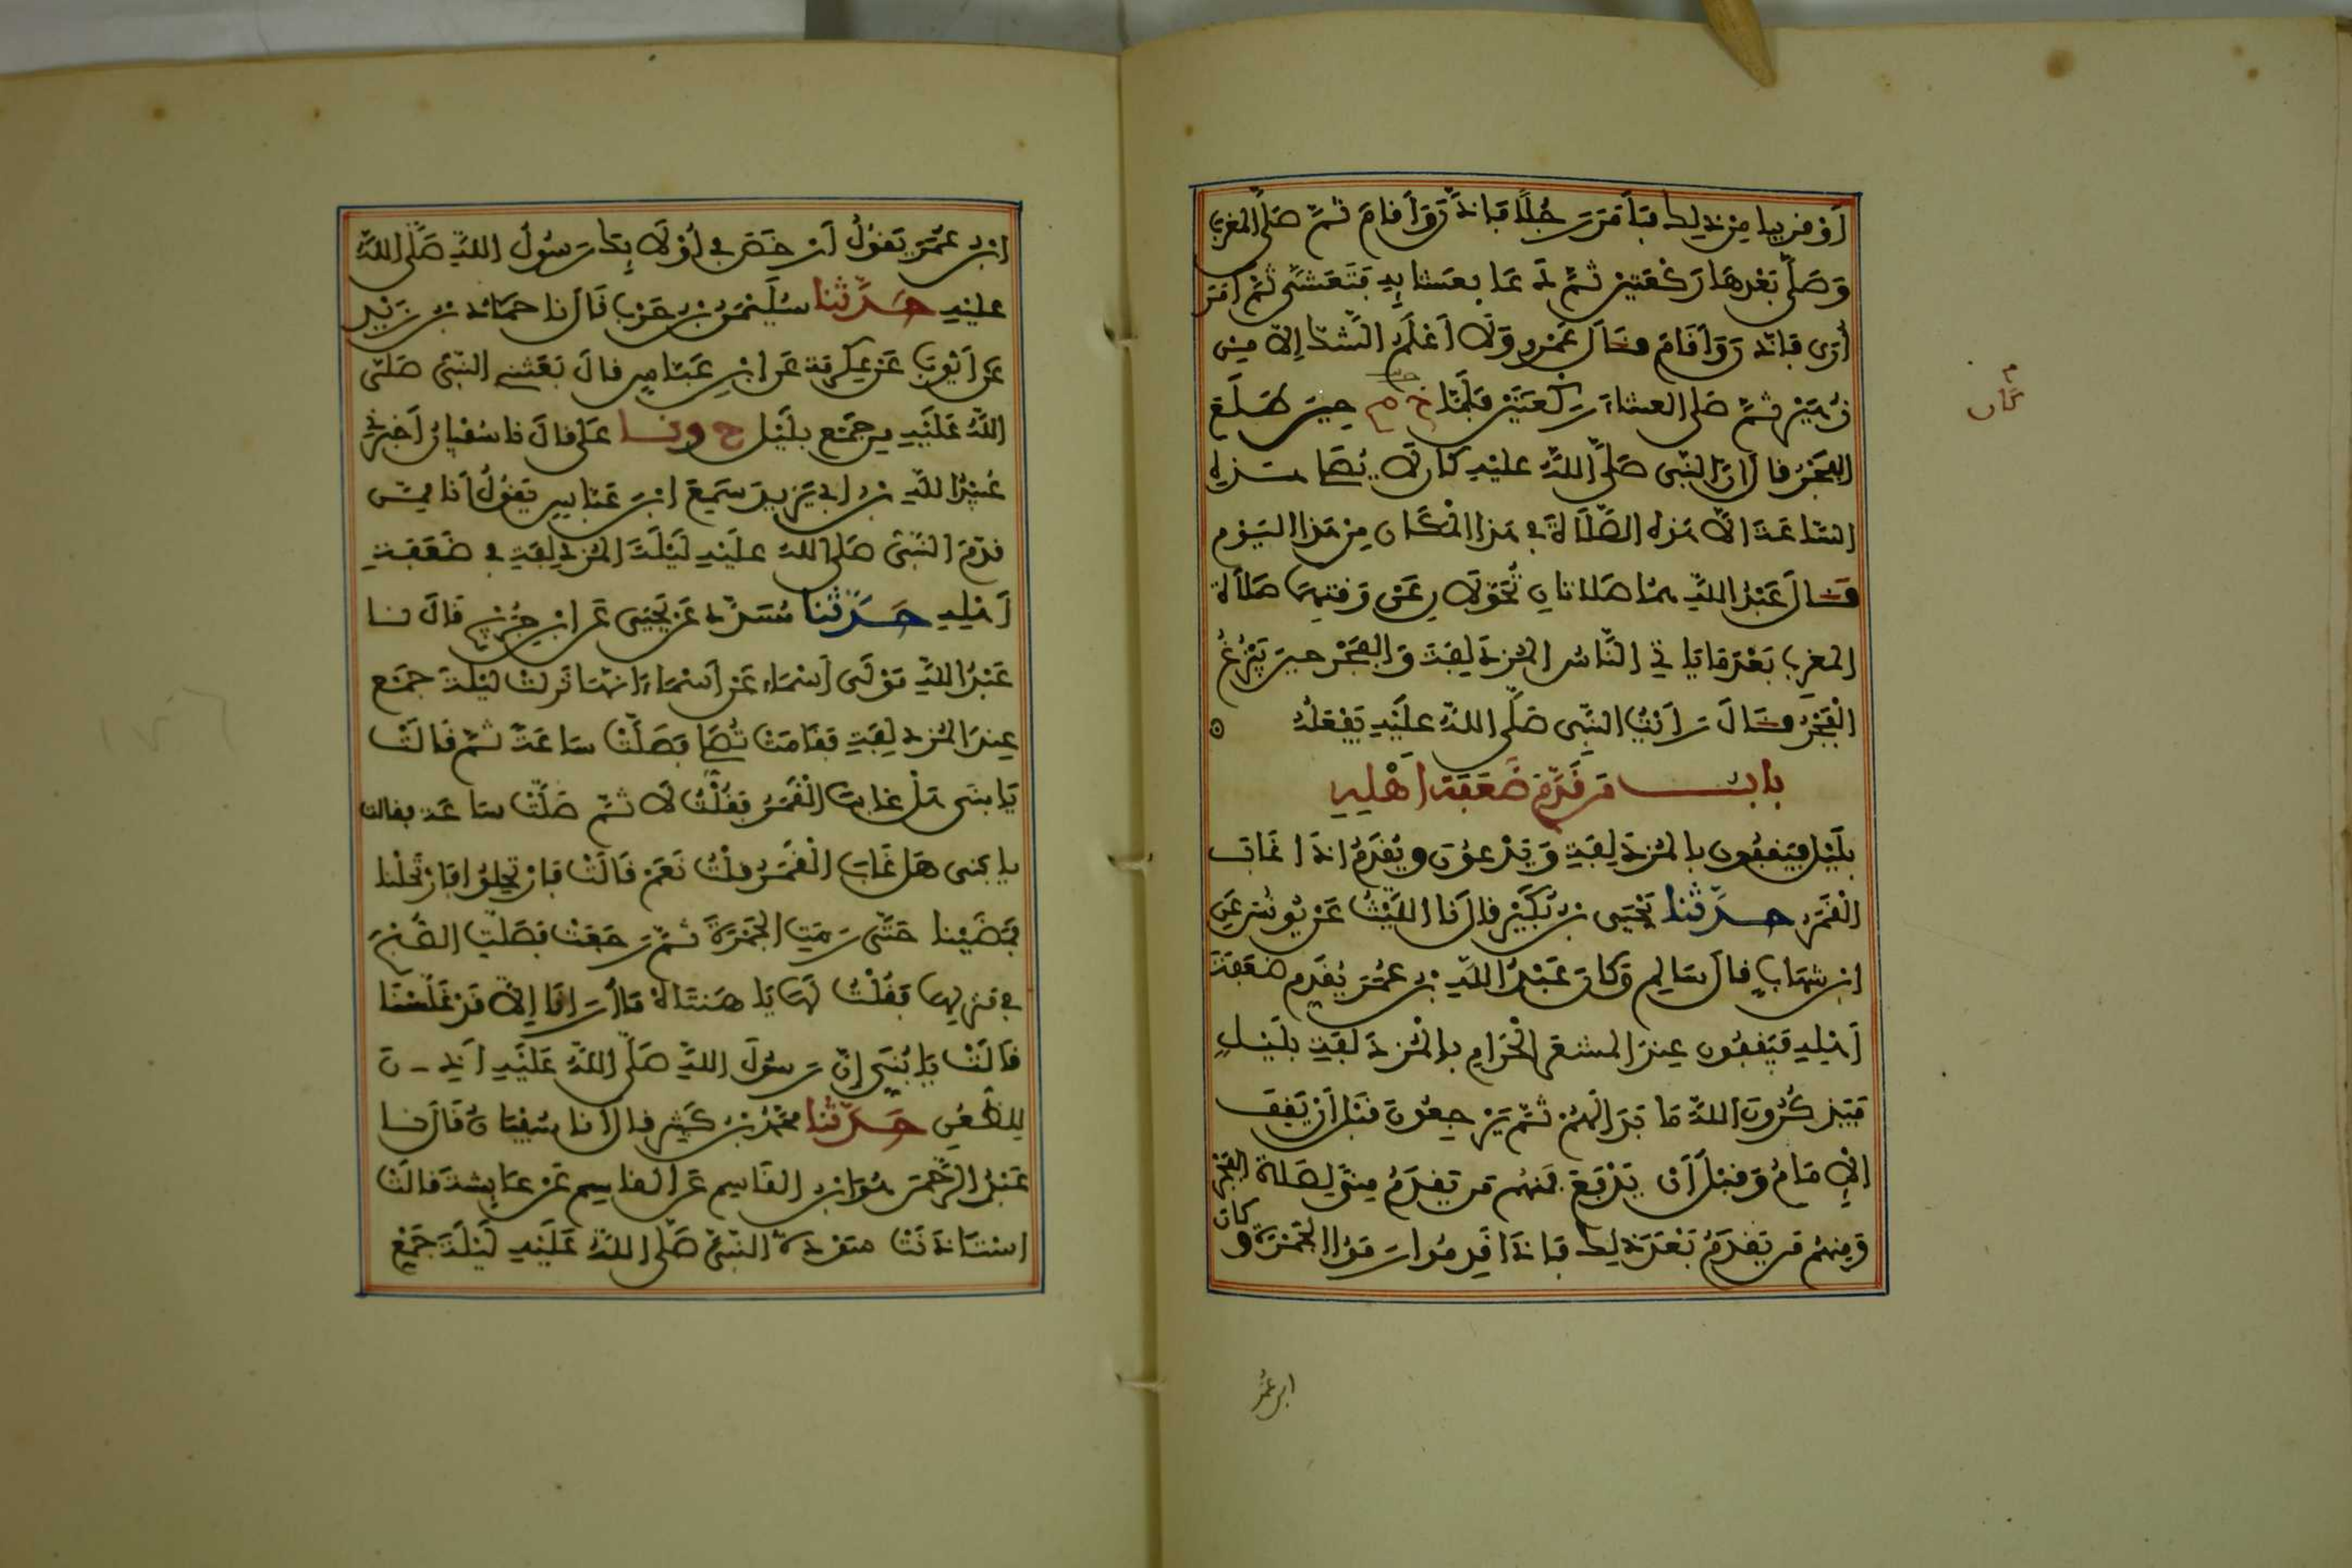 أو قريبا من ذلك فأمر رجلا فأذن وأقام ثم صلى المغرب
وصلى بعدها ركعتين ثم دعا بعشايه فتعشى ثم أمر
أرى فأذن وأقام فقال عمرو ولا أعلم الشك إلا من
زهير ثم صلى العشاء ركعتين فلما خ م حين طلع
الفجر قال إن النبي صلى الله عليه كان لا يصلي هذه
الساعة إلا هذه الصلاة في هذا المكان من هذا اليوم
فقال عبد الله هما صلاتان تحولان عن وقتهما صلاة
المغرب بعدما ياتي الناس المزدلفة والفجر حين يبزغ
الفجر فقال رأيت النبي صلى الله عليه يفعله
باب من قدم ضعفة أهله
بليل فيقفون بالمزدلفة ويدعون ويقدم إذا غاب
القمر حدثنا يحيى بن بكير قال نا الليث عن يونس عن
ابن شهاب قال سالم وكان عبد الله بن عمر يقدم ضعفة
أهله فيقفون عند المشعر الحرام بالمزدلفة بليل
فيذكرون الله ما بدا لهم ثم يرجعون قبل أن يقف
الإمام وقبل أن يدفع فمنهم من يقدم منى لصلاة الفجر
ومنهم من يقدم بعد ذلك فإذا قدموا رموا الجمرة وكان
كان
ابن عمر
ابن عمر يقول أرخص في أولايك رسول الله صلى الله
عليه حدثنا سليمن بن حرب قال نا حماد بن زيد
عن أيوب عن عكرمة عن ابن عباس قال بعثني النبي صلى
الله عليه من جمع بليل ح ونا علي قال نا سفيان أخبرني
عبيد الله بن أبي يزيد سمع ابن عباس يقول أنا ممن
قدم النبي صلى الله عليه ليلة المزدلفة في ضعفة
أهله حدثنا مسدد عن يحيى عن ابن جريج قال نا
عبد الله مولى أسماء عن أسماء أنها نزلت ليلة جمع
عند المزدلفة فقامت تصلي فصلت ساعة ثم قالت
يا بني هل غاب القمر فقلت لا ثم صلت ساعة فقالت
يا بني هل غاب القمر قلت نعم قالت فارتحلوا فارتحلنا
فمضينا حتى رمت الجمرة ثم رجعت فصلت الصبح
في منزلها فقلت لها يا هنتاه ما أرانا إلا قد غلسنا
قالت يا بني إن رسول الله صلى الله عليه أذن
للظعن حدثنا محمد بن كثير قال أنا سفيان قال نا
عبد الرحمن هو ابن القاسم عن القاسم عن عايشة قالت
استاذنت سودة النبي صلى الله عليه ليلة جمع